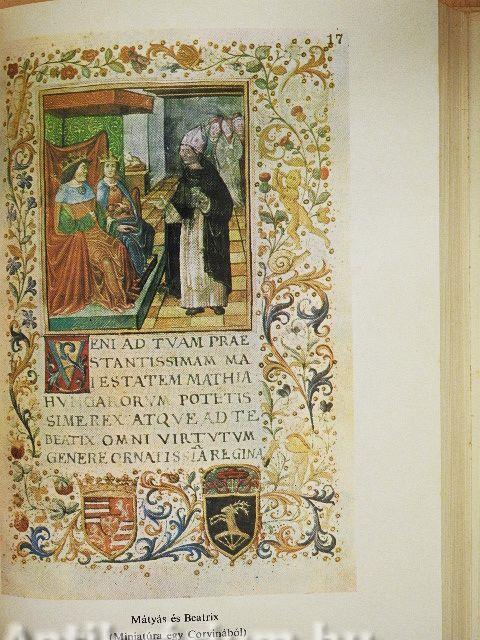 17
VENI AD TVAM PRAE
STANTISSIMAM MA
IESTATEM MATHIA
HVNGARORVM POTETIS
SIME REX ATQVE AD TE
BEATIX OMNI VIRTVTVM
GENERE ORNATISSIA REGINA
Mátyás és Beatrix
(Miniatúra egy Corvinából)